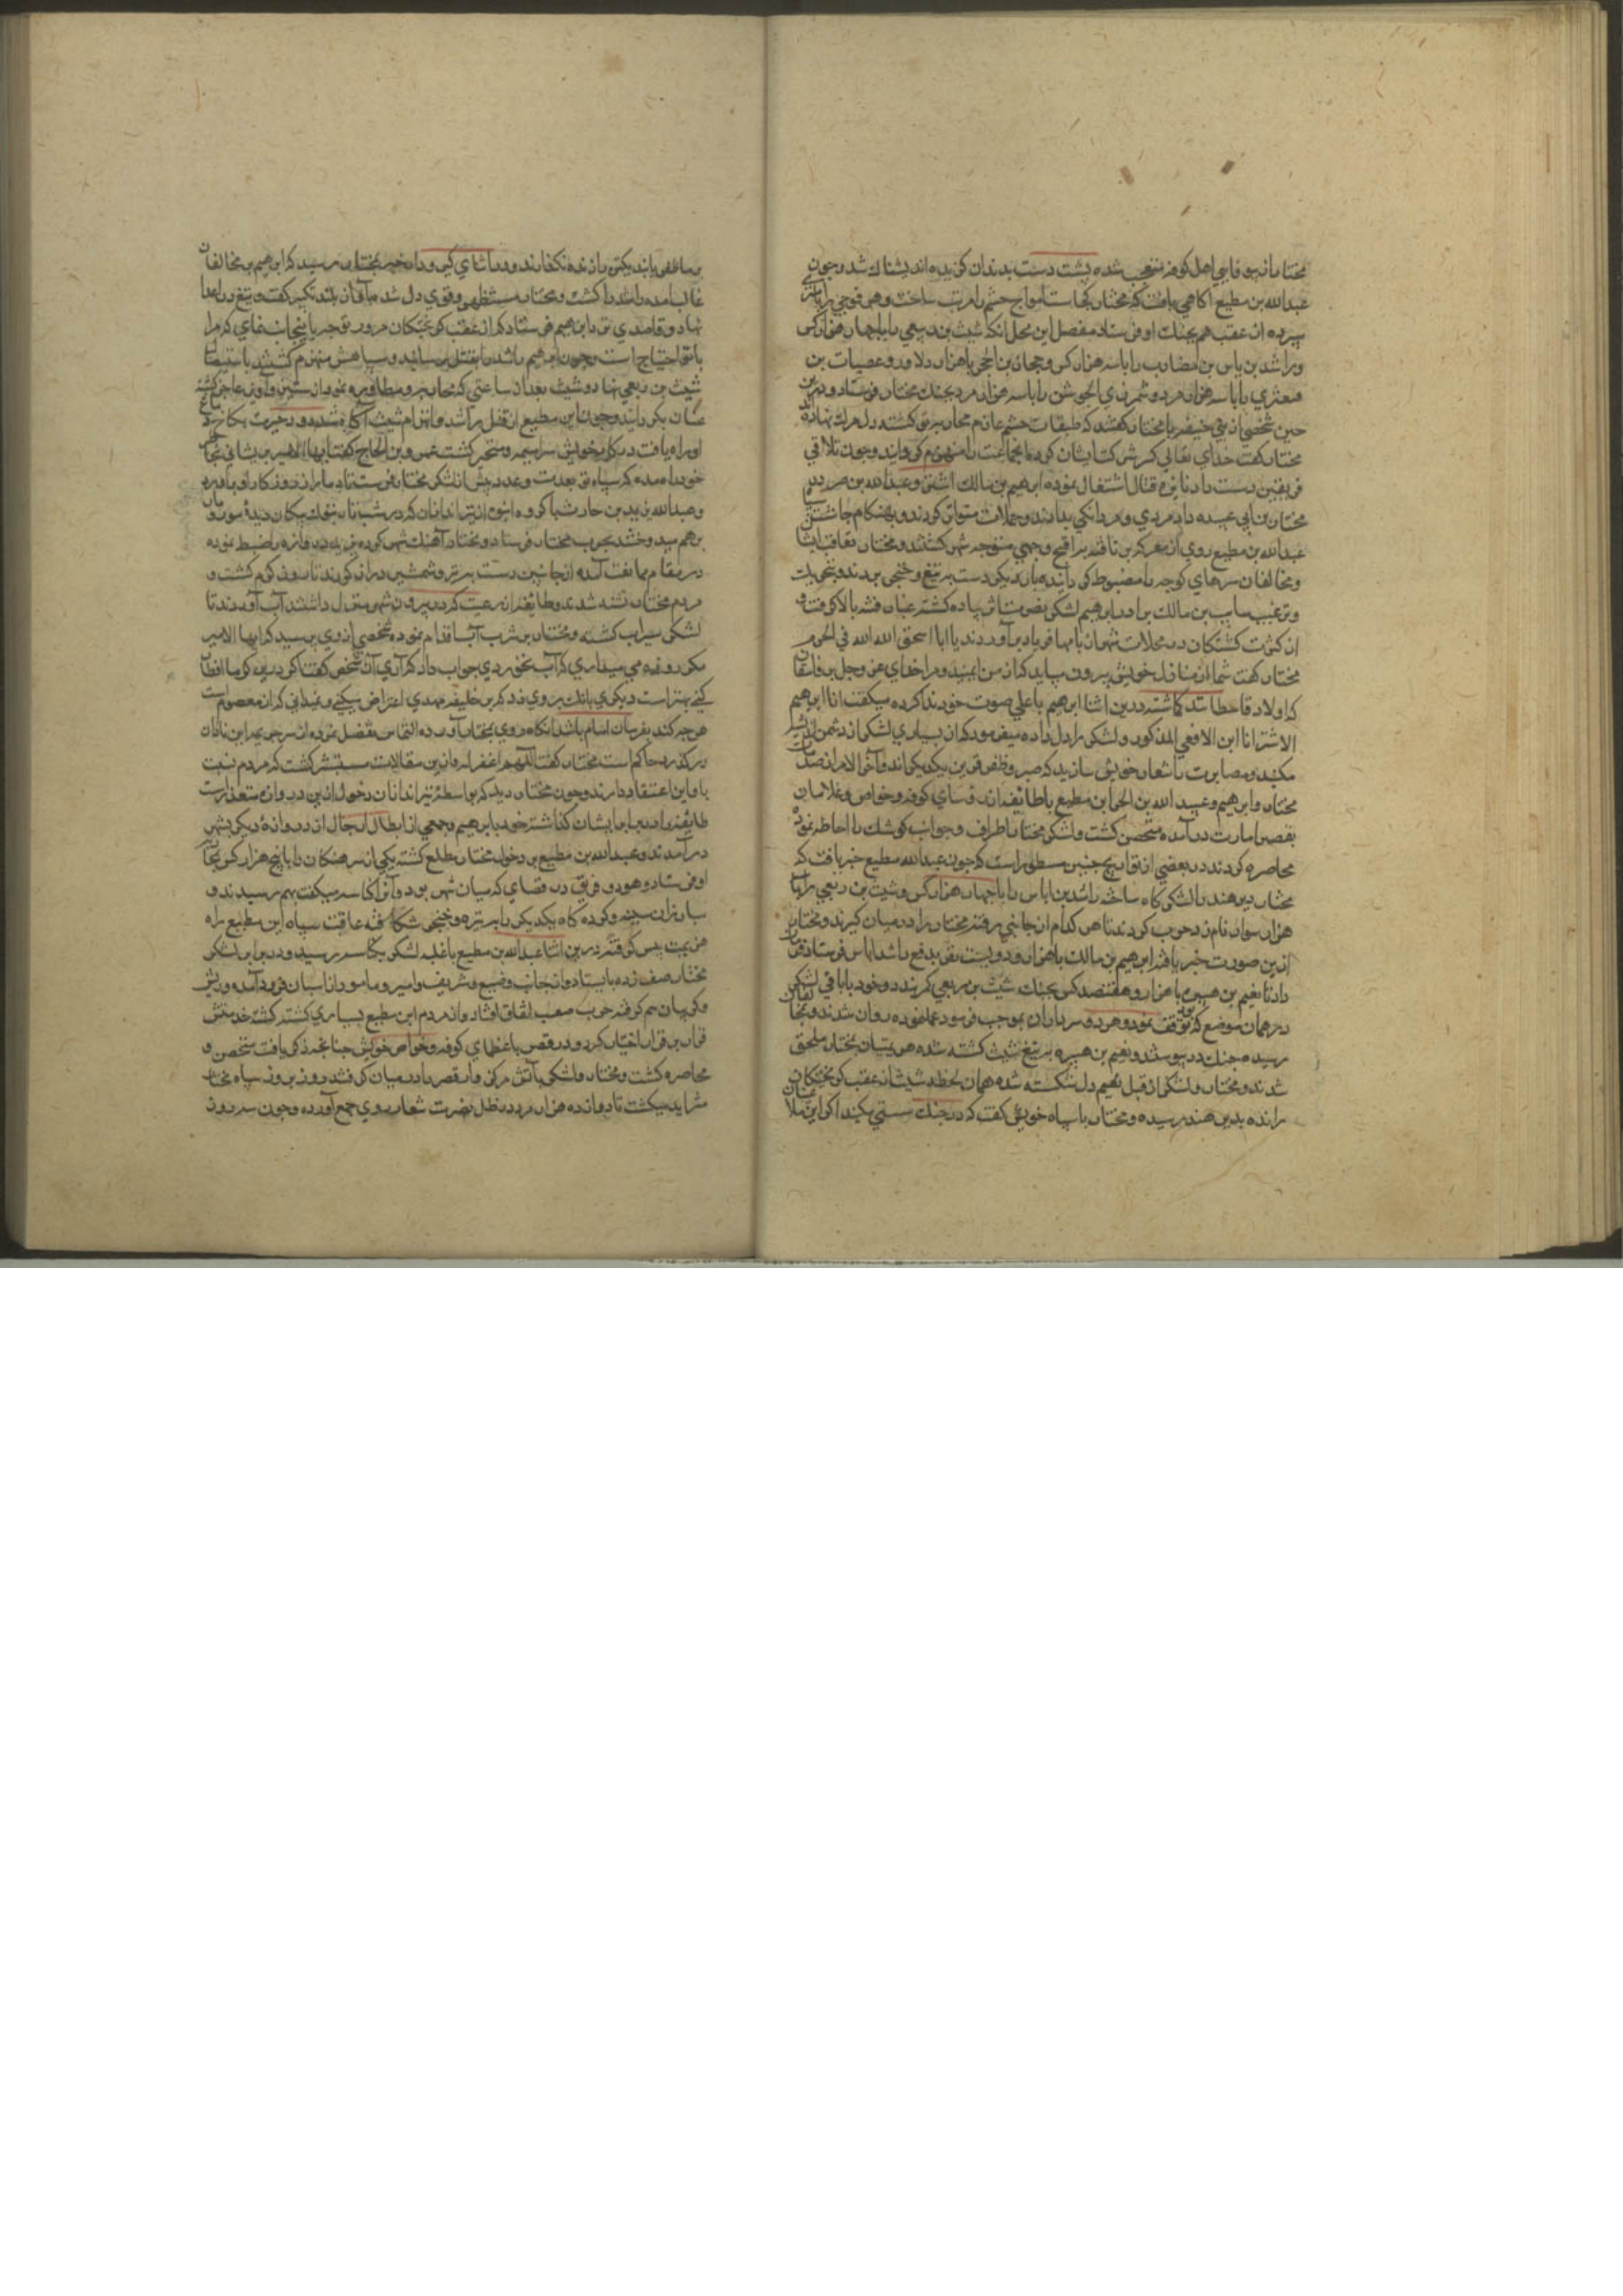 مختار از بی وفایی اهل کوفه متعجب شده پشت دست بدندان کزیده اندیشناک شد و چون
عبدالله بن مطیع آکاهی یافت که مختار کجاست افواج حشم را مرتب ساخت و هر فوجی را بامیری
سپرده از عقب هم بجنک او فرستاد مفصل این مجمل آنکه شیث بن ربعی را با چهار هزار کس
و راشد بن ایاس بن مضارب را با سه هزار کس و حجار بن ابجر با هزار دلاور و
را با سه هزار مرد و شمر ذی الجوشن را با سه هزار مرد بجنک مختار فرستاد و درین
حین شخصی از بنی حنیفه با مختار کفتند که طبقات حشم عازم محاربه تو کشته دل بر مرک نهاده اند
مختار کفت خدای تعالی کسر شوکت ایشان کرده آنجماعت را منهزم کرداند و چون تلاقی
فریقین دست داد نایره قتال اشتغال نموده ابرهیم بن مالک اشتر و عبدالله بن حر در سپاه
مختار بن ابی عبیده داد مردی و مردانکی بدادند و حملات متواتر کردند و بهنکام چاشت
عبدالله بن مطیع روی از معرکه بر تافته براقبح وجهی متوجه شهر کشتند و مختار تعاقب ایشان
و مخالفان سرهای کوچه را مضبوط کردانیده بار دیکر دست به تیغ و خنجر بردند و بتحریک
و ترغیب سایب بن مالک برادر ابرهیم لشکر نصرت اثر پیاده کشته غبار فتنه بالا کرفت و
از کثرت کشتکان در محلات شهر زنان بامها فریاد برآوردند یا ابا اسحق الله الله فی الحرم
مختار کفت شما از منازل خویش بیرون میایید که از من ایمنید و مرا خدای عز وجل بر فاسقان
که اولاد قاسطانند کماشته درین اثنا ابرهیم باعلی صوت خود ندا کرده میکفت انا ابرهیم
الاشتر انا ابن الافعی المذکور و لشکر را دل داده میفرمود که از بسیاری لشکر از دشمن اندیشه
مکنید و مصابرت را شعار خویش سازید که صبر و ظفر قرین یکدیکراند و آخر الامر از صدمات
مختار و ابرهیم و عبید الله بن الحر ابن مطیع با طایفه از رؤسای کوفه و خواص و غلامان
بقصر امارت درآمده متحصن کشت و لشکر مختار اطراف و جوانب کوشک را احاطه نموده
محاصره کردند در بعضی از تواریخ چنین مسطور است که چون عبدالله مطیع خبر یافت که
مختار دیر هند را لشکرکاه ساخته راشد بن ایاس را با چهار هزار کس و شیث بن ربعی را با
هزار سوار نامزد حرب کردند تا هر کدام از جانبی رفته مختار را در میان کیرند و مختار
ازین صورت خبر یافته ابرهیم بن مالک با هزار و دویست نفر بدفع راشد ایاس فرستاد و فرمان
داد تا نعیم بن هبیره با هزار و هفتصد کس بجنک شیث بن ربعی کردند و خود با باقی لشکر
در همان موضع که بود توقف نمود و هر دو سرداران بموجب فرموده عمل نموده روان شدند و
رسیده بجنک در پیوستند و نعیم بن هبیره به تیغ شیث کشته شده هزیمتیان بمختار ملحق
شدند و مختار و لشکر از قتل نعیم دل شکسته شده همان لحظه شیث از عقب کریختکان
رانده بدیر هند رسیده و مختار با سپاه خویش کفت که در جنک سستی مکنید اکر این
بر ما ظفر یابند یکتن را زنده نکذارند و در اثنای کیر و دار خبر بمختار رسید که ابرهیم بر مخالفان
غالب آمده راشد را کشت و مختار مستظهر و قوی دل شد بآواز بلند تکبیر کفت و تیغ در اعدا
نهاد و قاصدی نزد ابرهیم فرستاد که از عقب کریختکان مرو و توجه باینجانب نمای که مرا
با تو احتیاج است و چون ابرهیم راشد را بقتل رسانید و سپاهش منهزم کشتند باستیصال
شیث بن ربعی نهاد و شیث بعد از ساعتی که محاربه و مطارده نمود از ستیز و آویز عاجز کشته
عنان بکردانید و چون ابن مطیع از قتل راشد و انهزام شیث آکاه شده دود حیرت بکاخ دماغ
او راه یافت در کار خویش سراسیمه و متحیر کشت عمرو بن الحجاج کفت ایها الامیر پریشانی بخاطر
خود راه مده که سپاه تو بعدت و عدد بیش از لشکر مختار
و عبدالله یزید بن حارث با کروه انبوه از تیراندازان که در شب تار بنوک پیکان دیده مور و مار
بر هم میدوختند بحرب مختار فرستاد و مختار آهنک شهر کرده یزید دروازه را ضبط نموده
در مقام ممانعت آمده از جانبین دست به تیر و شمشیر دراز کردند تا روز کرم کشت و
مردم مختار تشنه شدند و طایفه از رعیت که در بیرون شهر منزل داشتند آب آوردند تا
لشکر سیراب کشته و مختار بر شرب آب اقدام ننموده شخصی از وی پرسید که ایها الامیر
مکر روزه می میداری که آب نخوردی جواب داد که آری آن شخص کفت اکر درین کرما افطار
کنی بهتر است دیکری بانک بر وی زد که بر خلیفه مهدی اعتراض میکنی و نمیدانی که او معصوم است
هر چه کند بفرمان امام باشد آنکاه روی بمختار آورده التماس تفضل نموده از سر جریمه این نادان
در کذرد حاکم است مختار کفت اللهم اغفر له و ازین مقالات مستبشر کشت که مردم نسبت
با وی این اعتقاد دارند و چون مختار دید که بواسطه تیراندازان دخول ازین دروازه متعذر است
طایفه را در برابر ایشان کذاشته خود با ابرهیم و جمعی از ابطال رجال از دروازه دیکر بشهر
درآمدند و عبدالله بن مطیع بر دخول مختار مطلع کشته یکی از سرهنکان را با پنج هزار کس بجنک
او فرستاد و هر دو فریق در فضای که میان شهر بود و آنرا کناسه میکفتند بهم رسیدند و
مبارزان سینه و کرده کاه یکدیکر را به نیزه و خنجر شکافته عاقبت سپاه ابن مطیع راه
هزیمت پیش کرفتند درین اثنا عبدالله بن مطیع با غلبه لشکر بکناسه رسید و در برابر لشکر
مختار صف زده بایستاد و از جانب وضیع و شریف و امیر و مامور از اسبان فرود آمده و ریش
و کریبان هم کرفته حرب صعب اتفاق افتاد و از مردم ابن مطیع بسیاری کشته کشته خدمتش
فرار بر قرار اختیار کرد و در قصر با عظمای کوفه و خواص خویش چنانچه ذکر یافت متحصن و
محاصره کشت و مختار و لشکر یآتش مرکز وار قصر را در میان کرفتند روز بروز سپاه مختار
متزاید میکشت تا دوازده هزار مرد در ظل نصرت شعار وی جمع آورده و چون سه روز